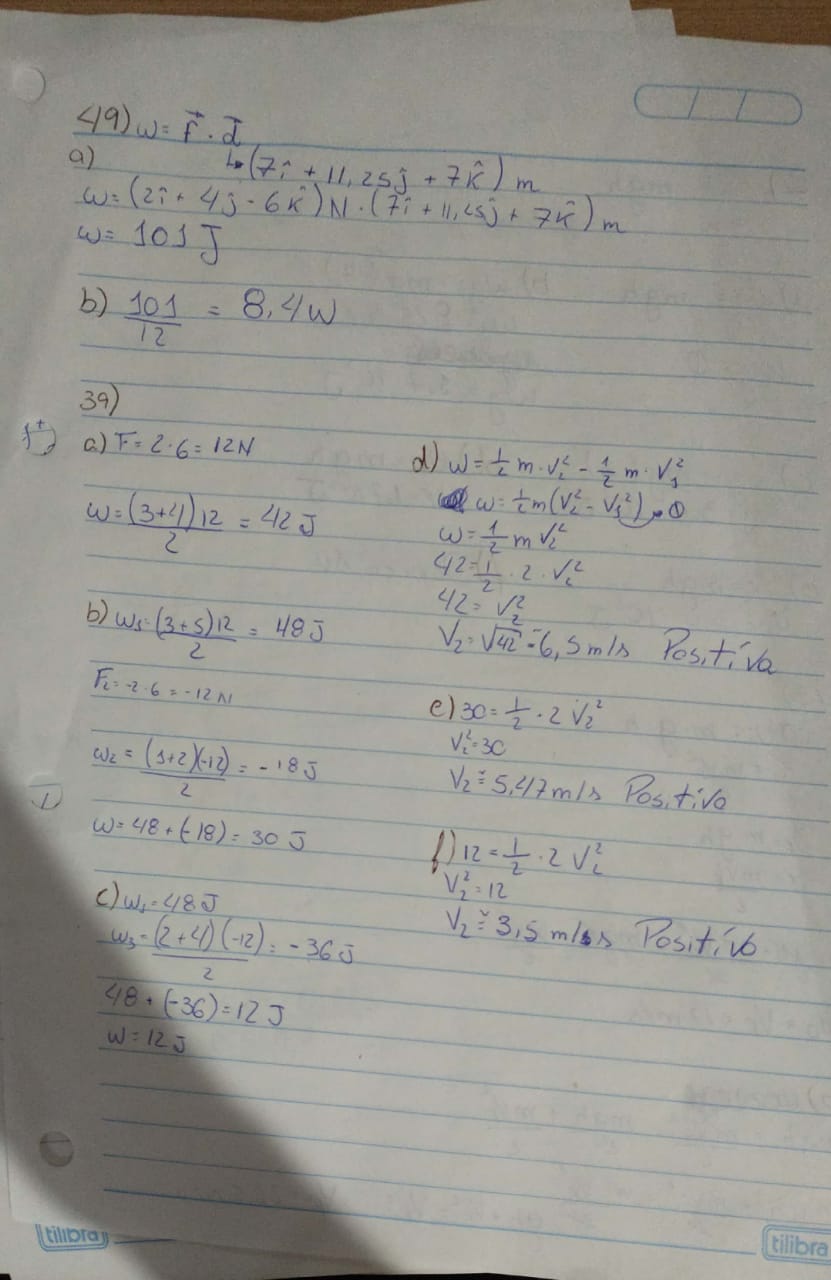 49) W = F⃗ . d⃗
a) ↳ (7î + 11,25ĵ + 7k̂) m
W = (2î + 4ĵ - 6k̂) N . (7î + 11,25ĵ + 7k̂) m
W = 101 J
b) 101/12 = 8,4 W
39)
a) F = 2.6 = 12N
W = (3+4)12/2 = 42 J
b) W₁ = (3+5)12/2 = 48 J
F₂ = -2.6 = -12N
W₂ = (1+2)(-12)/2 = -18 J
W = 48 + (-18) = 30 J
c) W₁ = 48 J
W₃ = (2+4)(-12)/2 = -36 J
48 + (-36) = 12 J
W = 12 J
d) W = 1/2 m . V₂² - 1/2 m . V₁²
W = 1/2 m (V₂² - V₁²) → 0
W = 1/2 m V₂²
42 = 1/2 . 2 . V₂²
42 = V₂²
V₂ = √42 = 6,5 m/s Positiva
e) 30 = 1/2 . 2 V₂²
V₂² = 30
V₂ ≅ 5,47 m/s Positiva
f) 12 = 1/2 . 2 V₂²
V₂² = 12
V₂ ≅ 3,5 m/s Positivo
tilibra
tilibra